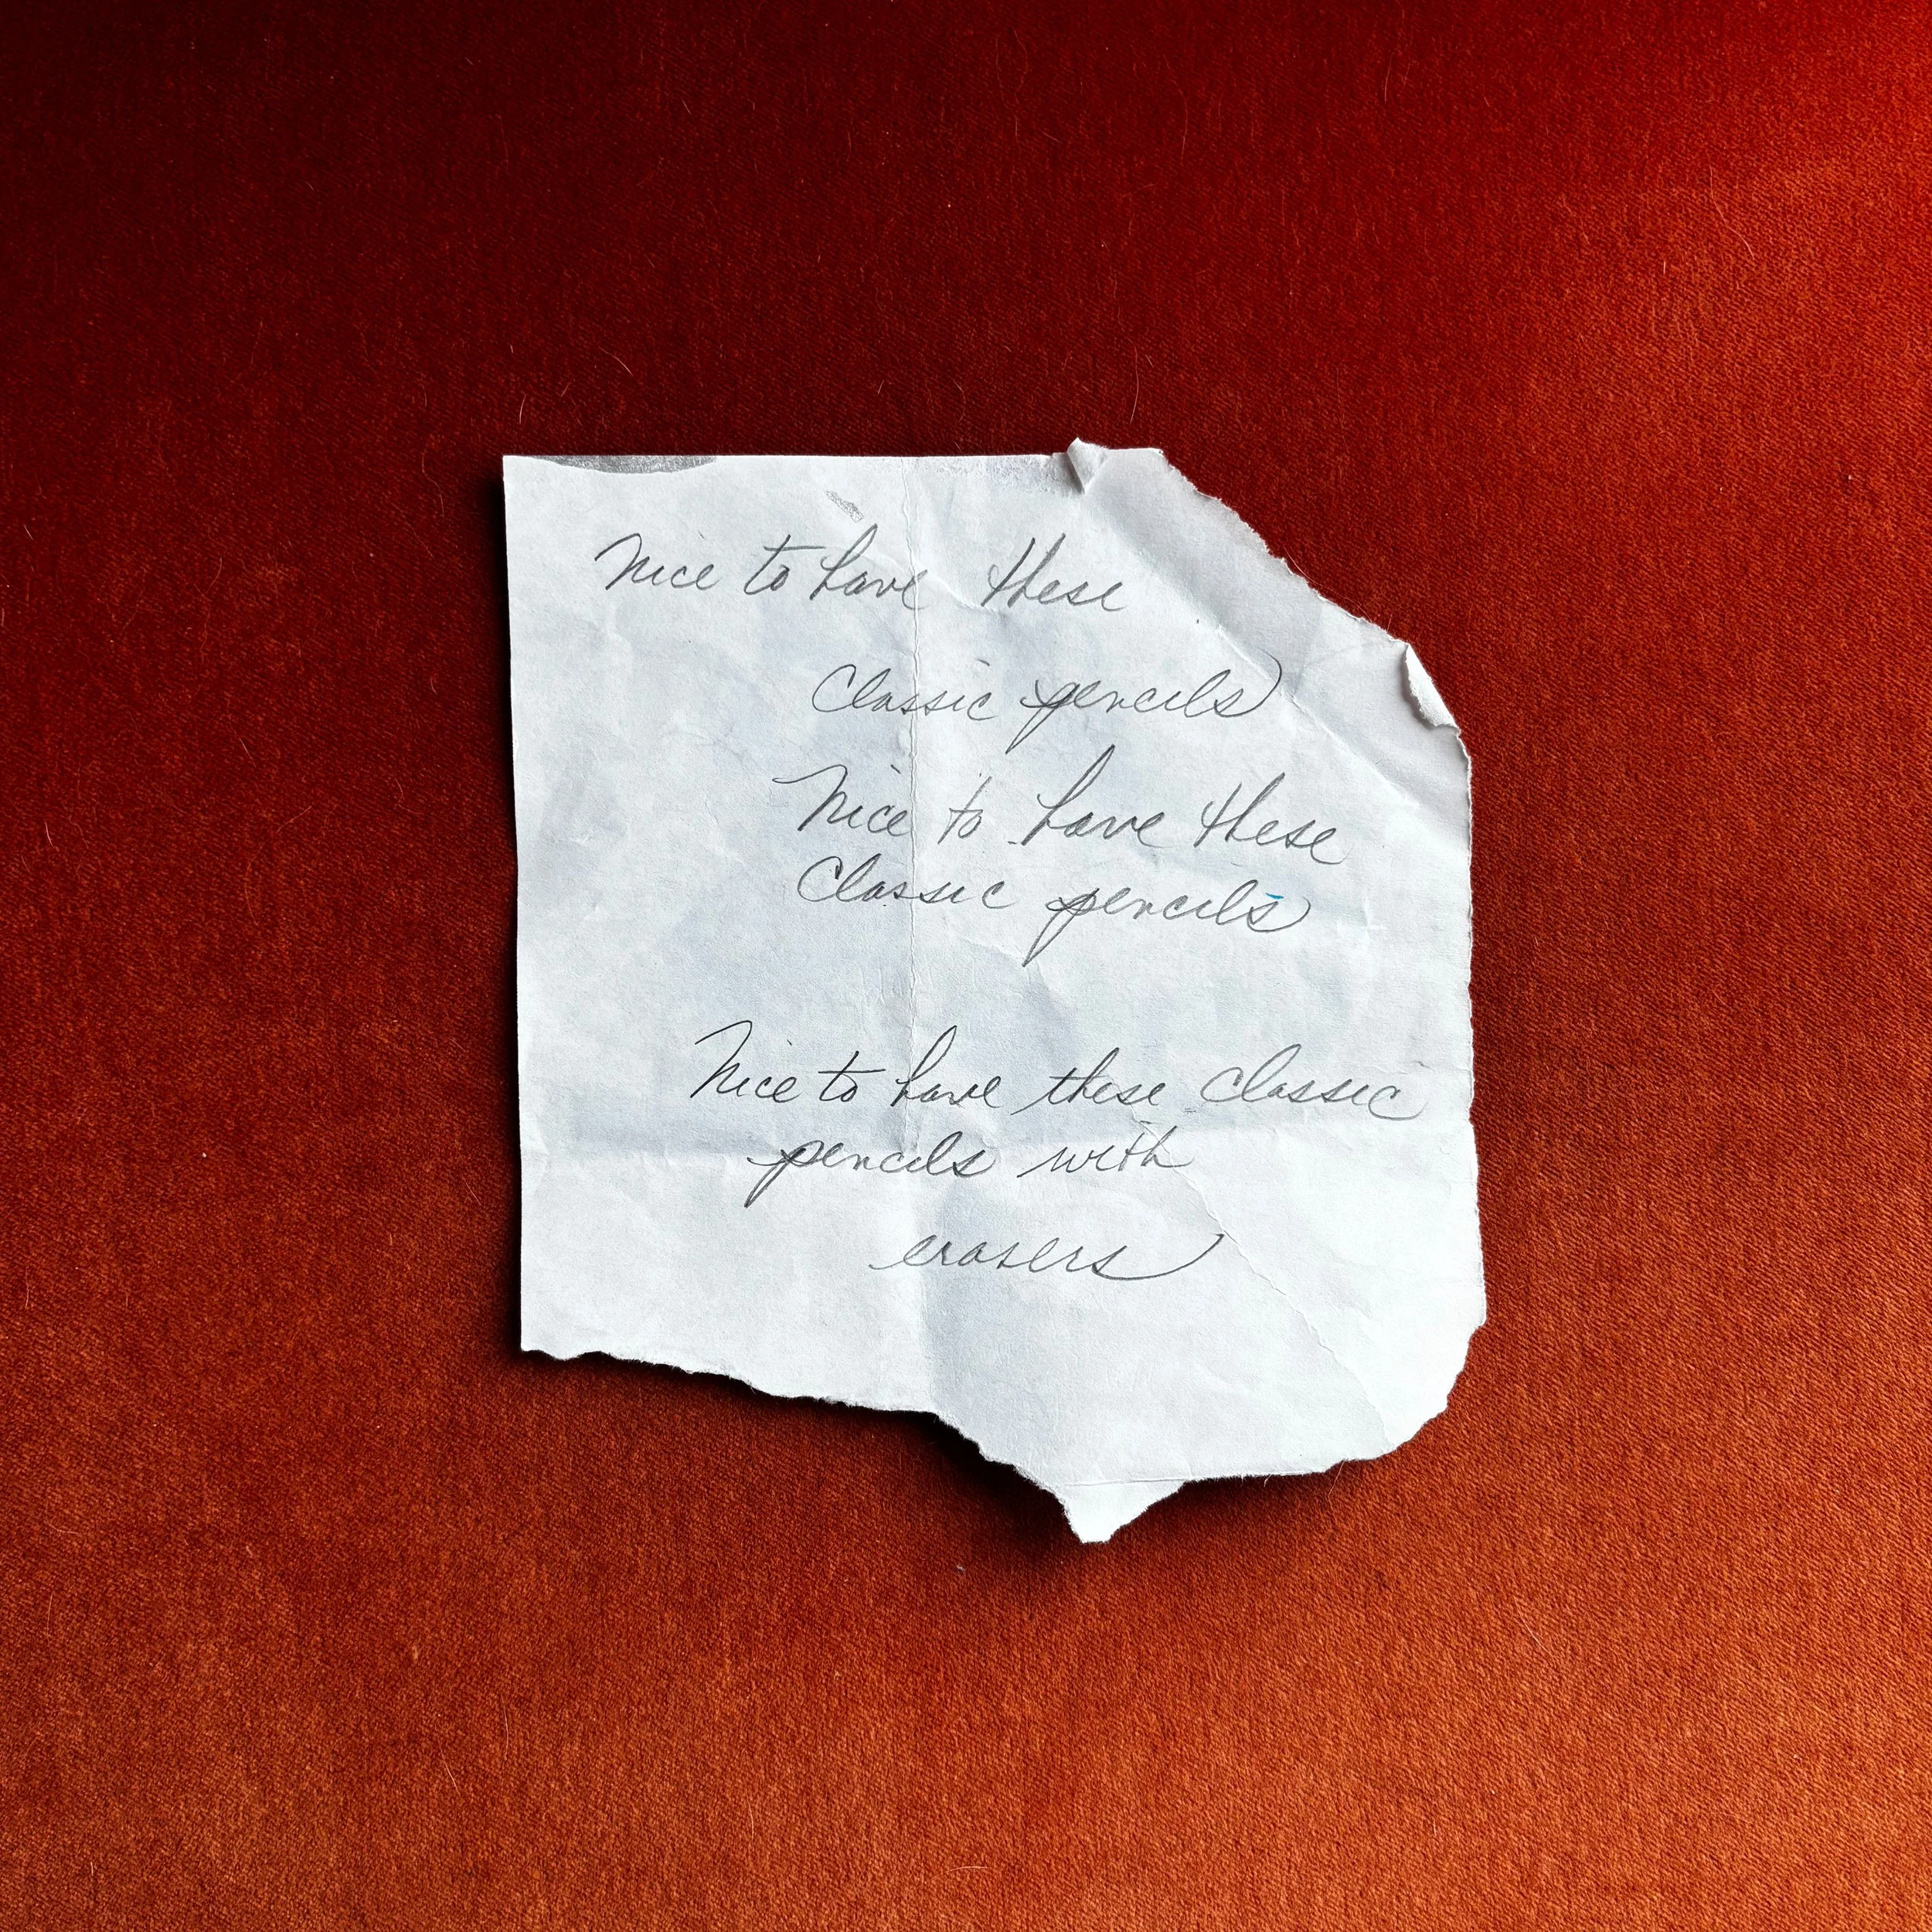 Nice to have these
Classic pencils
Nice to have these
Classic pencils
Nice to have these classic
pencils with
erasers